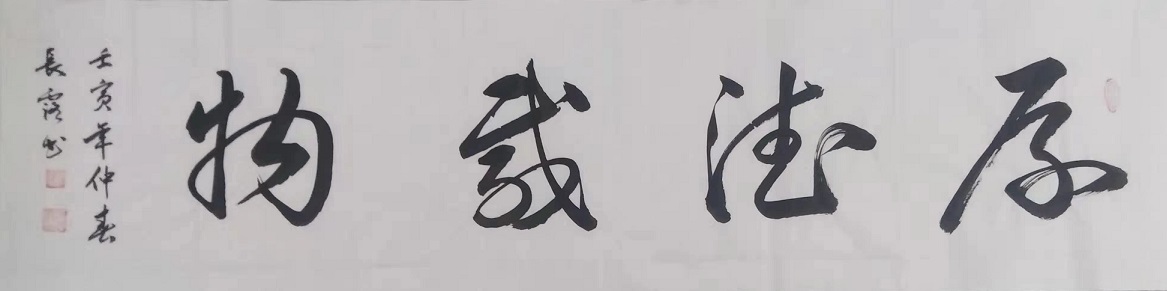 厚德載物
壬寅年仲春
長露书